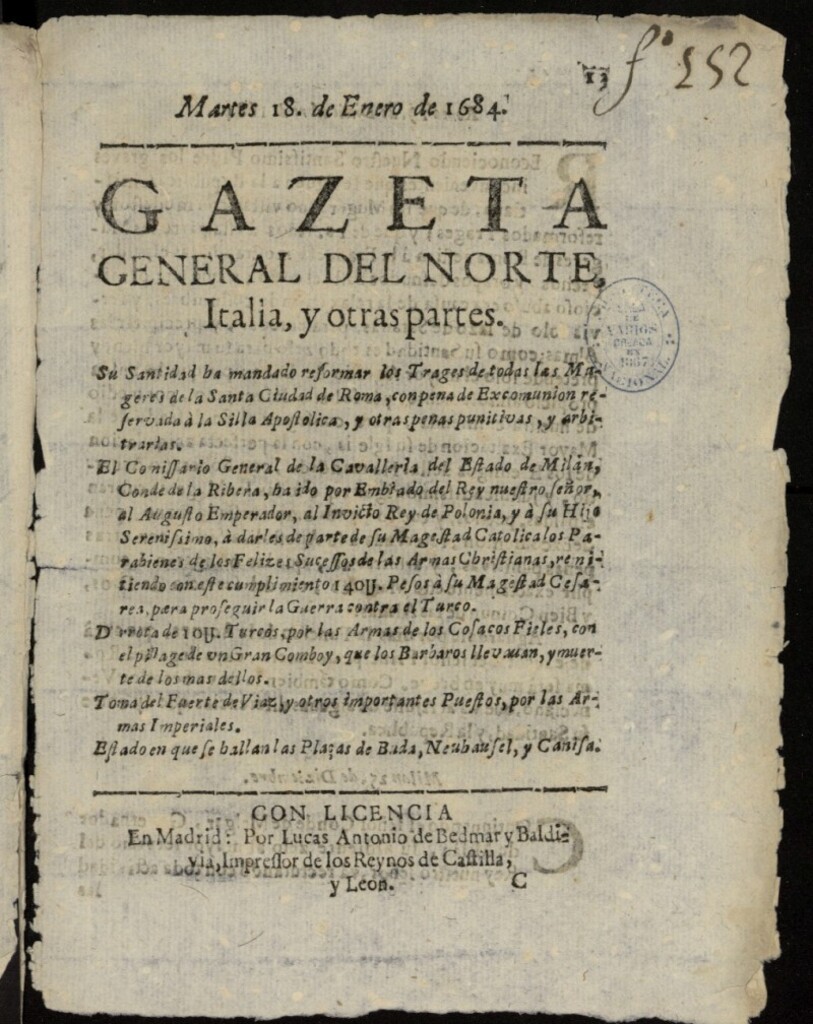 13 fº 252
Martes 18. de Enero de 1684.
GAZETA
GENERAL DEL NORTE,
Italia, y otras partes.
Su Santidad ha mandado reformar los Trages de todas las Mu-
geres de la Santa Ciudad de Roma, con pena de Excomunion re-
servada à la Silla Apostolica, y otras penas punitivas, y arbi-
trarias.
El Comissario General de la Cavalleria del Estado de Milàn,
Conde de la Ribera, ha ido por Embiado del Rey nuestro señor,
al Augusto Emperador, al Invicto Rey de Polonia, y à su Hijo
Serenissimo, à darles de parte de su Magestad Catolica los Pa-
rabienes de los Felizes Sucessos de las Armas Christianas, remi-
tiendo con este cumplimiento 140U. Pesos à su Magestad Cesa-
rea, para proseguir la Guerra contra el Turco.
Derrota de 10U. Turcos, por las Armas de los Cosacos Fieles, con
el pillage de vn Gran Comboy, que los Barbaros llevauan, y muer-
te de los mas dellos.
Toma del Fuerte de Viaz, y otros importantes Puestos, por las Ar-
mas Imperiales.
Estado en que se hallan las Plaças de Buda, Neuhausel, y Canisa.
CON LICENCIA
En Madrid: Por Lucas Antonio de Bedmar y Baldi-
via, Impressor de los Reynos de Castilla,
y Leon. C